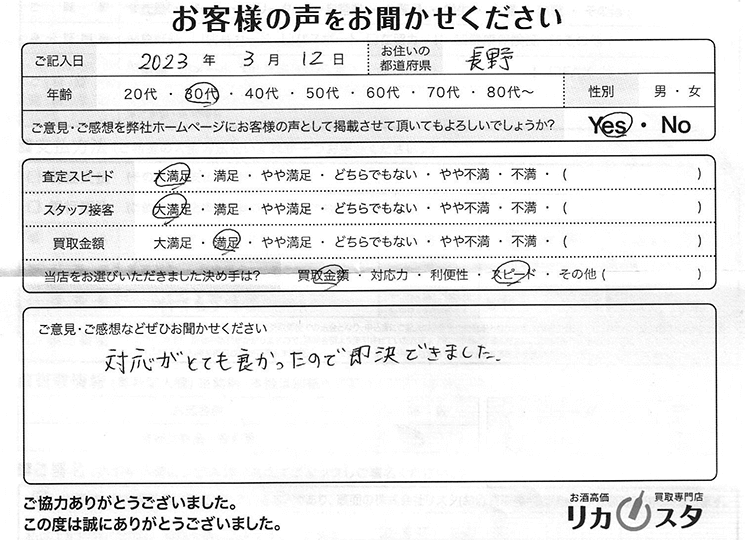 お客様の声をお聞かせください
ご記入日 2023 年 3 月 12 日 お住いの都道府県 長野
年齢 20代 ・ 30代 ・ 40代 ・ 50代 ・ 60代 ・ 70代 ・ 80代～ 性別 男 ・ 女
ご意見・ご感想を弊社ホームページにお客様の声として掲載させて頂いてもよろしいでしょうか? Yes ・ No
査定スピード 大満足 ・ 満足 ・ やや満足 ・ どちらでもない ・ やや不満 ・ 不満 ・ ( )
スタッフ接客 大満足 ・ 満足 ・ やや満足 ・ どちらでもない ・ やや不満 ・ 不満 ・ ( )
買取金額 大満足 ・ 満足 ・ やや満足 ・ どちらでもない ・ やや不満 ・ 不満 ・ ( )
当店をお選びいただきました決め手は? 買取金額 ・ 対応力 ・ 利便性 ・ スピード ・ その他 ( )
ご意見・ご感想などぜひお聞かせください
対応がとても良かったので即決できました。
ご協力ありがとうございました。
この度は誠にありがとうございました。
お酒高価 買取専門店
リカスタ